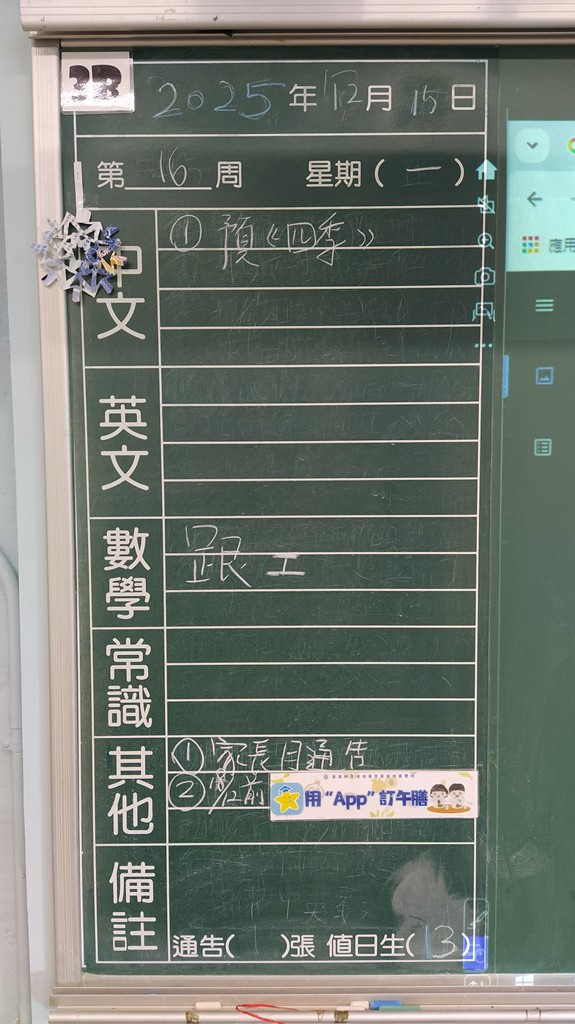 3B
2025年12月15日
第16周 星期(一)
中文
① 預《四季》
英文
數學
跟工
常識
其他
① 家長月通告
② 18/12前 用“App”訂午膳
備註
通告(1)張 值日生(13)
應用